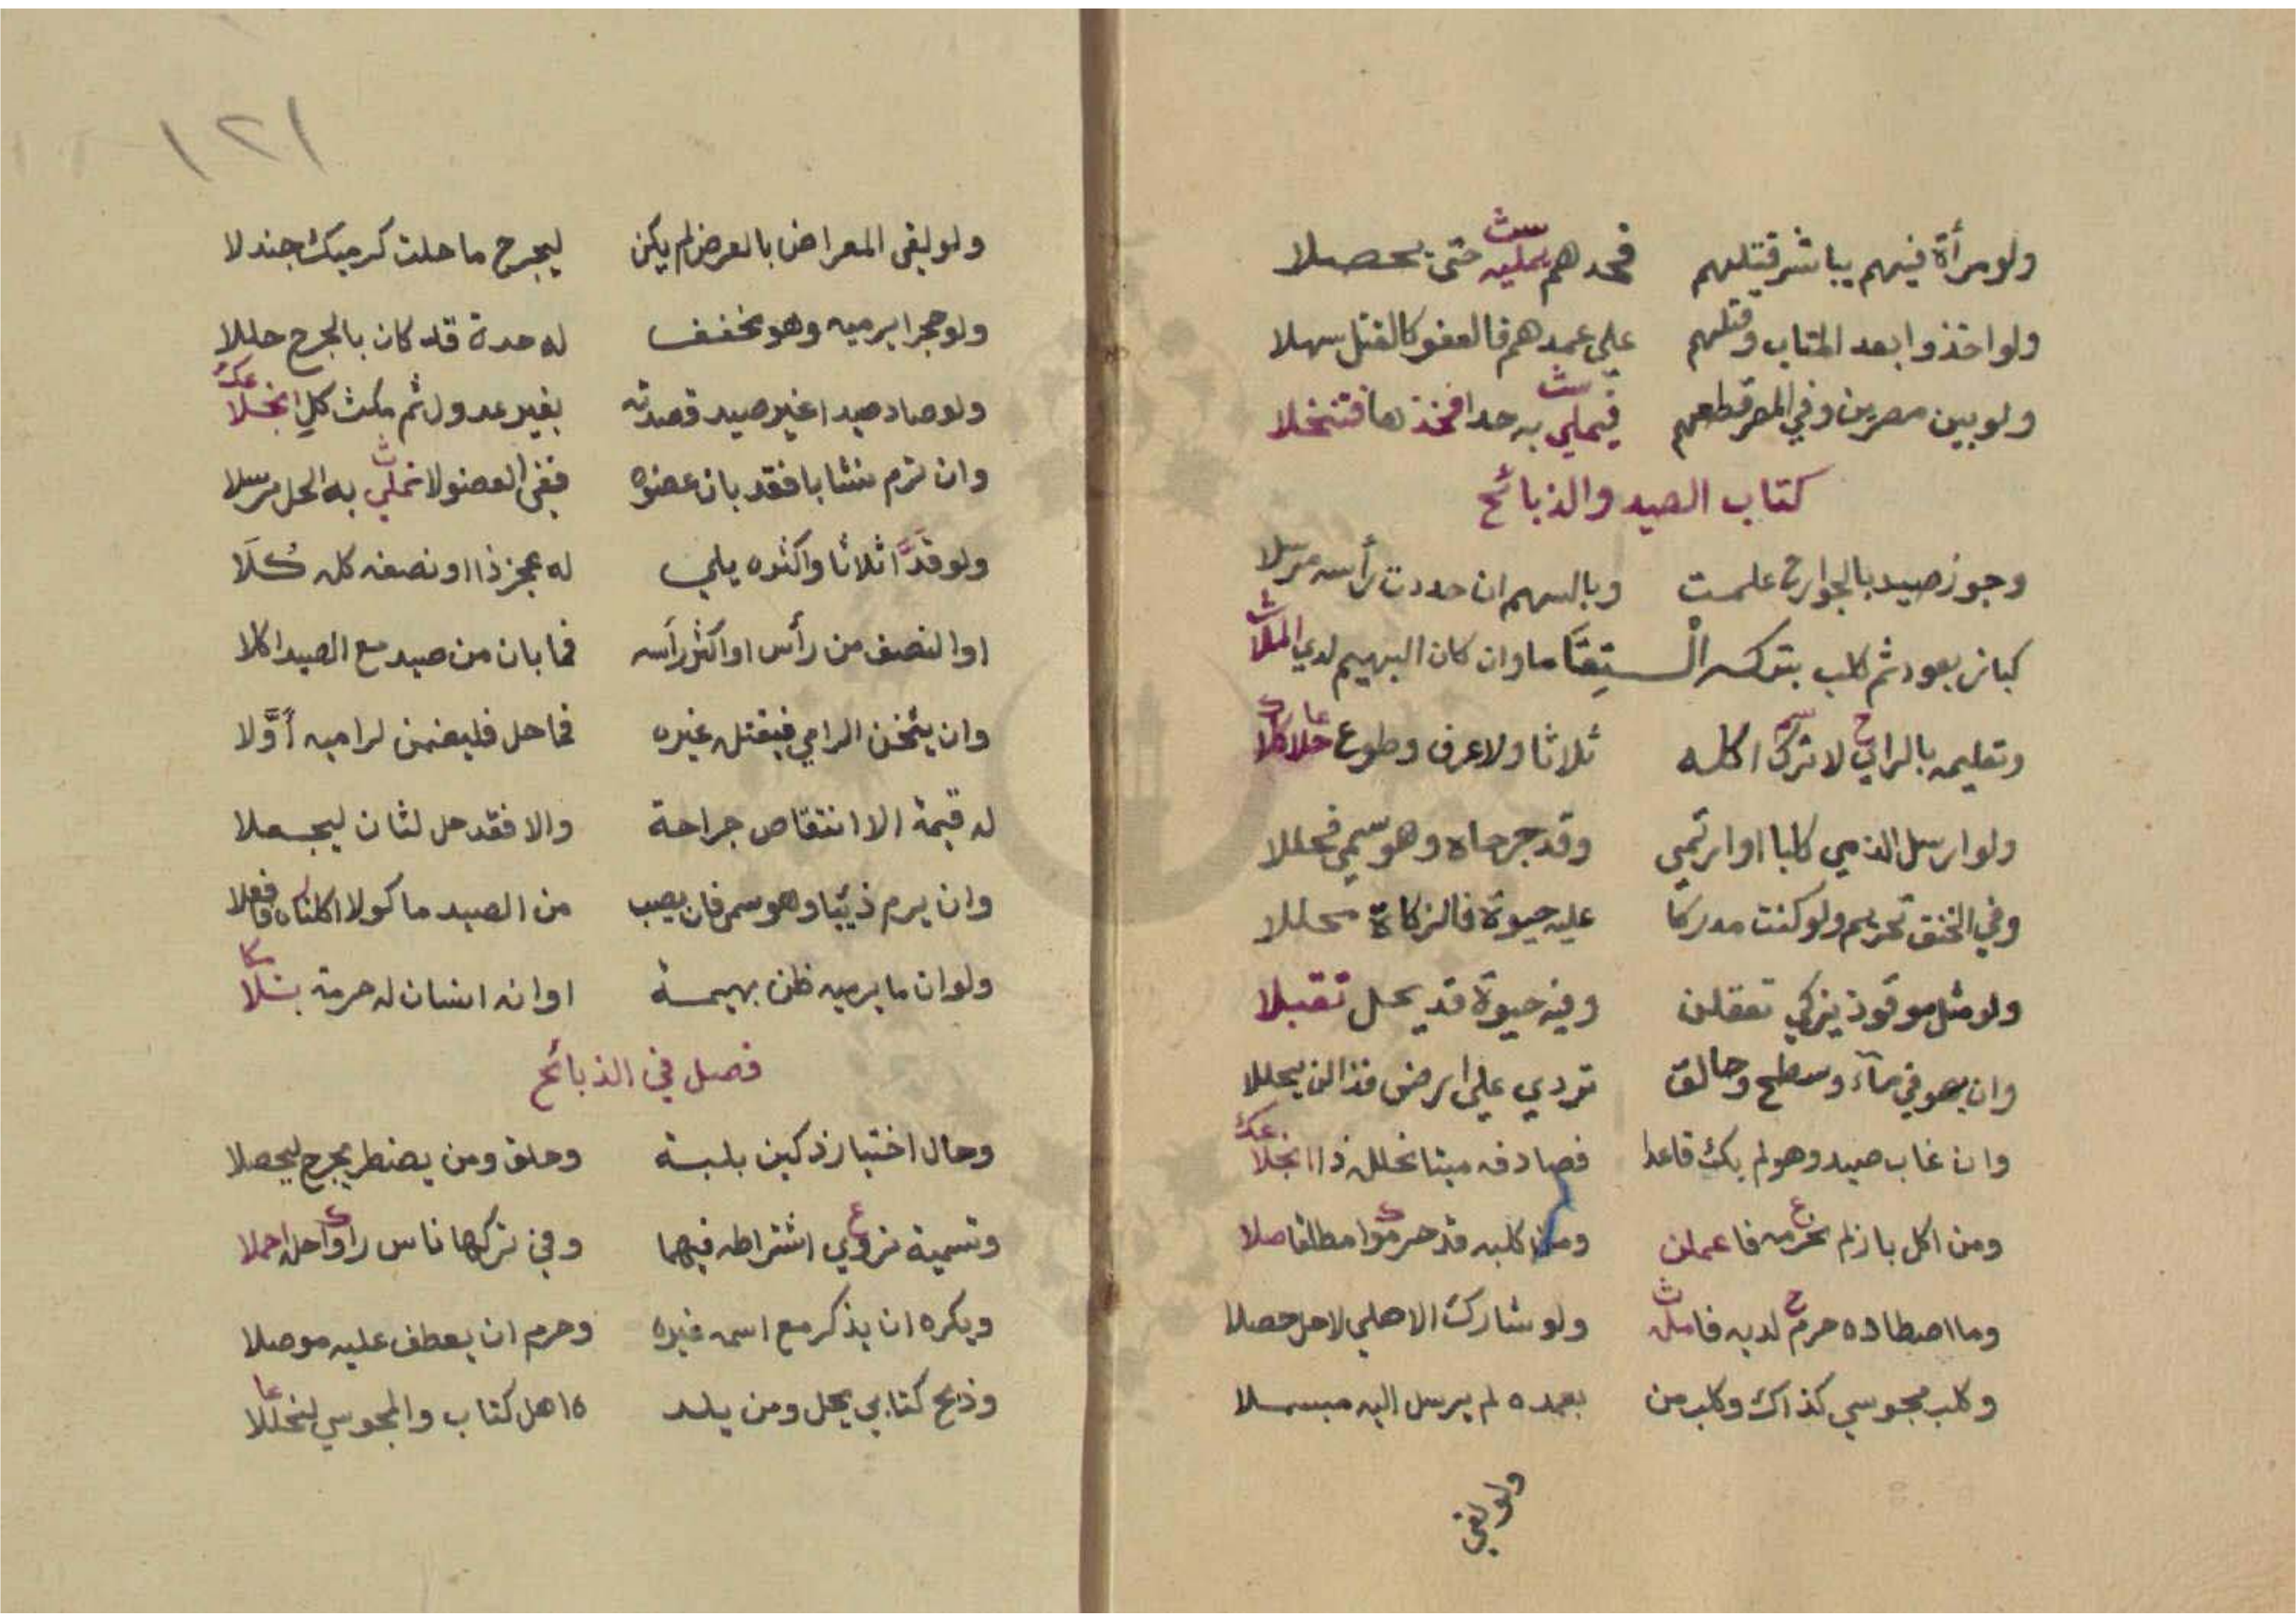 ولو مرأة فيهم يباشر قتلهم فحدهم يمليه حتى يحصلا
ولو اخذوا بعد المتاب وقتلهم على عمدهم فالعفو كالقتل سهلا
ولو بين مصرين وفي المصر قطعهم فيملي به حدا فخذها فتنخلا
كتاب الصيد والذبائح
وجوز صيد بالجوارح علمت وبالسهم ان حددت رأسه مرسلا
كباز بعود ثم كلب بتركه الـ ستقاما وان كان البهيم لدي الملا
وتعليمه بالراي لا ترك اكله ثلاثا ولا عرف وطوع حلا كلا
ولو ارسل الذمي كلبا او ارتمى وقد جرحاه وهو سمي فحللا
وفي الخنق تحريم ولو كنت مدركا عليه حيوة فالزكاة محللا
ولو مثل موقوذ يزكي تعقلن وفيه حيوة قد يحل تقبلا
وان يهو في مآء وسطح وحالق تردي على ارض فذا لن يحللا
وان غاب صيد وهو لم يك قاعدا فصادفه ميتا نحلل ذا انجلا
ومن اكل باز لم نحرمه فاعملن ومن كلبه قد حرموا مطلقا صلا
وما اصطاده حرم لديه فامله ولو شارك الاهلي لا حل حصلا
وكلب مجوسي كذاك وكلب من بعمده لم يرسل اليه مبسملا
ولو لقي
١٢١
ولو لقي المعراض بالعرض لم يكن ليجرح ما حلت كرميك جندلا
ولو حجرا يرميه وهو مخفف له حدة قد كان بالجرح حللا
ولو صاد صيدا غير صيد قصدته بغير عدول ثم مكث كل انجلا
وان ترم نشابا فقد بان عضوه ففي العضو لا نملي به الحل مرسلا
ولو قدا اثلاثا واكثره يلي له عجز ذا او نصفه كله كلا
او النصف من رأس او اكثر رأسه فما بان من صيد مع الصيد اكلا
وان يثخن الرامي فيقتل غيره فما حل فليضمن لراميه أولا
له قيمة الا انتقاص جراحة والا فقد حل لثان ليجعلا
وان يرم ذيبا وهو سمى فان يصب من الصيد ماكولا اكلناه فافعلا
ولو ان ما يرميه ظن بهيمة او انه انسان له حرمة بتلا
فصل في الذبائح
وحال اختيار ذكين بلبة وحلق ومن يضطر يجرح ليحصلا
وتسمية نروي اشتراطه فيهما وفي تركها ناس راوا حله احملا
ويكره ان يذكر مع اسمه غيره وحرم ان يعطف عليه موصلا
وذبح كتابي يحل ومن يلد ه اهل كتاب والمجوسي لنحللا